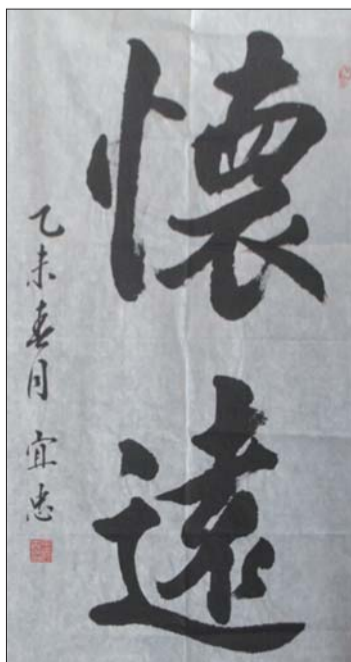 懷遠
乙未春月 宜忠